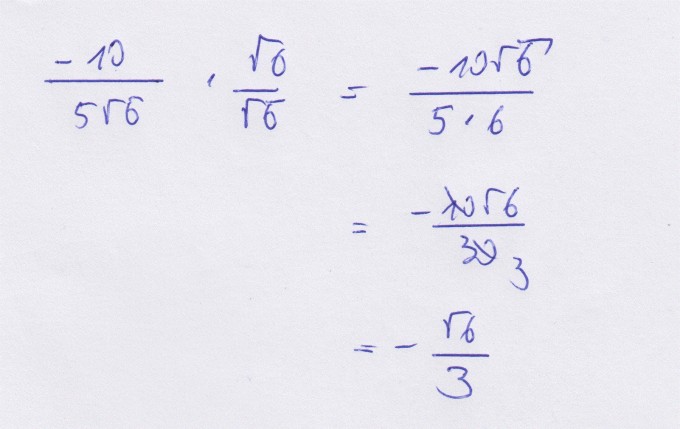 -10/5√6 · √6/√6 = -10√6/5·6
= -10√6/30 3
= - √6/3